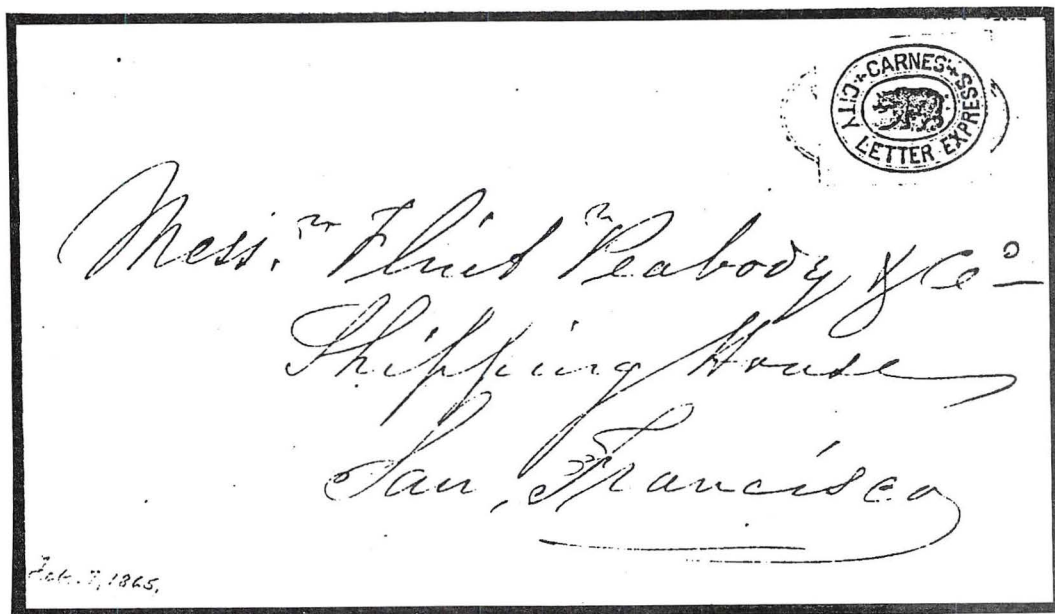 CARNES
CITY LETTER EXPRESS
Mess.rs Flint Peabody & Co
Shipping House
San Francisco
Feb. 7, 1865.